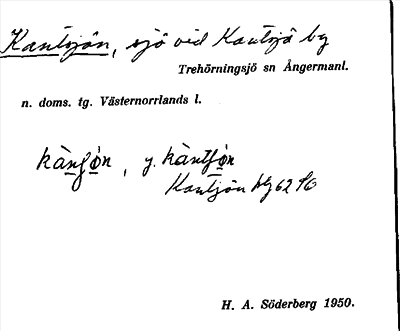 Kantsjön, sjö vid Kantsjö by
Trehörningsjö sn Ångermanl.
n. doms. tg. Västernorrlands l.
kànʃø̀n, y. kàntʃøn
Kantsjön
H. A. Söderberg 1950.